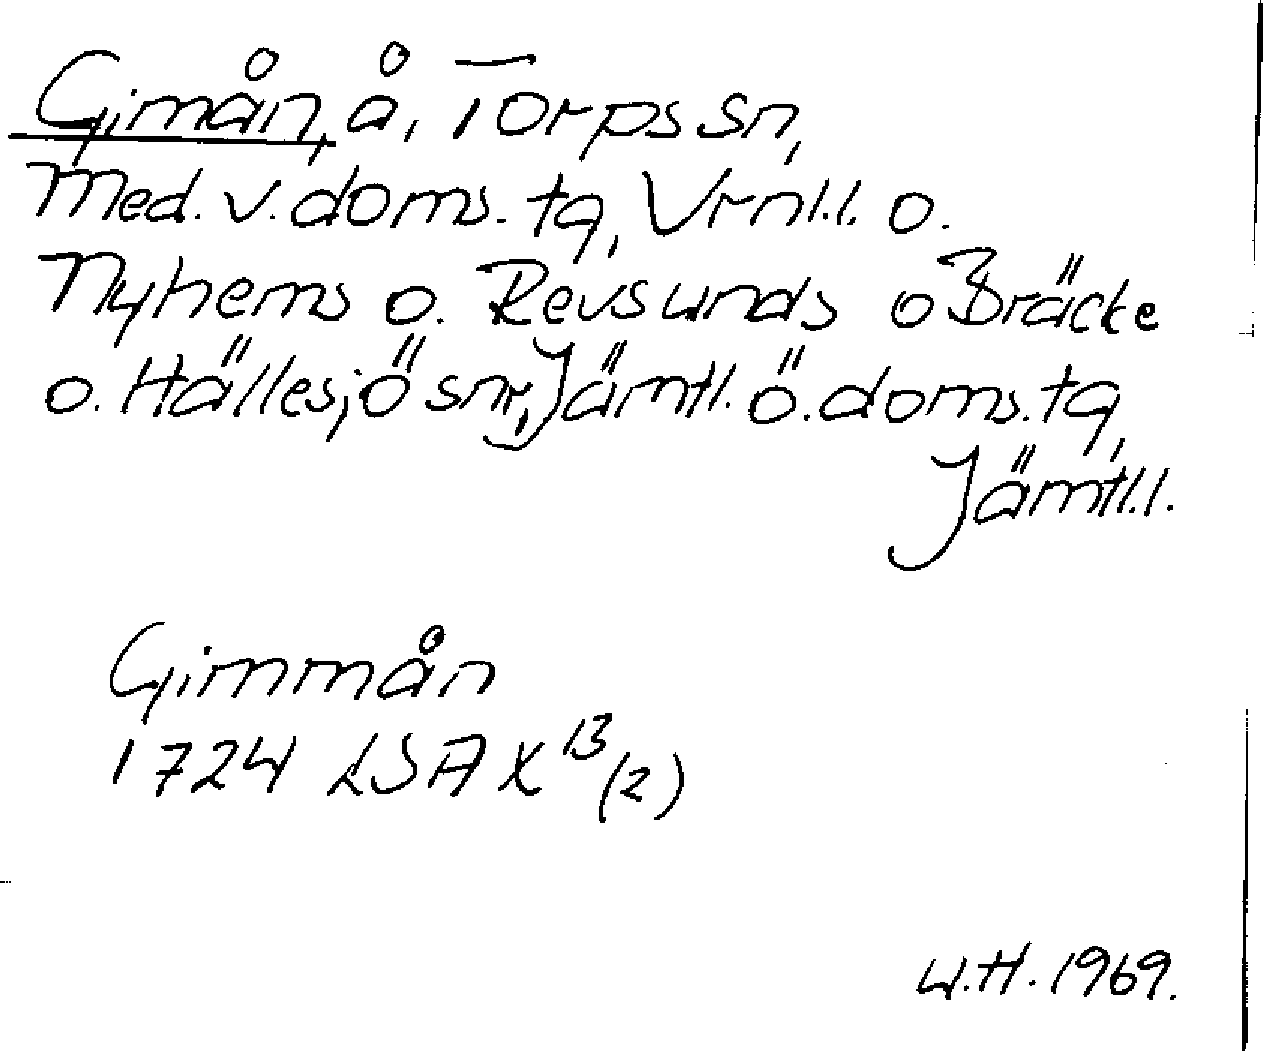 Gimån, å, Torps sn,
Med. v. doms. tg, Vrnl.l. o.
Nyhems o. Revsunds o Bräcke
o. Hällesjö snr, Jämtl. ö. doms. tg,
Jämtl.l.
Gimmån
1724 LSA X 13 (2)
W.H. 1969.